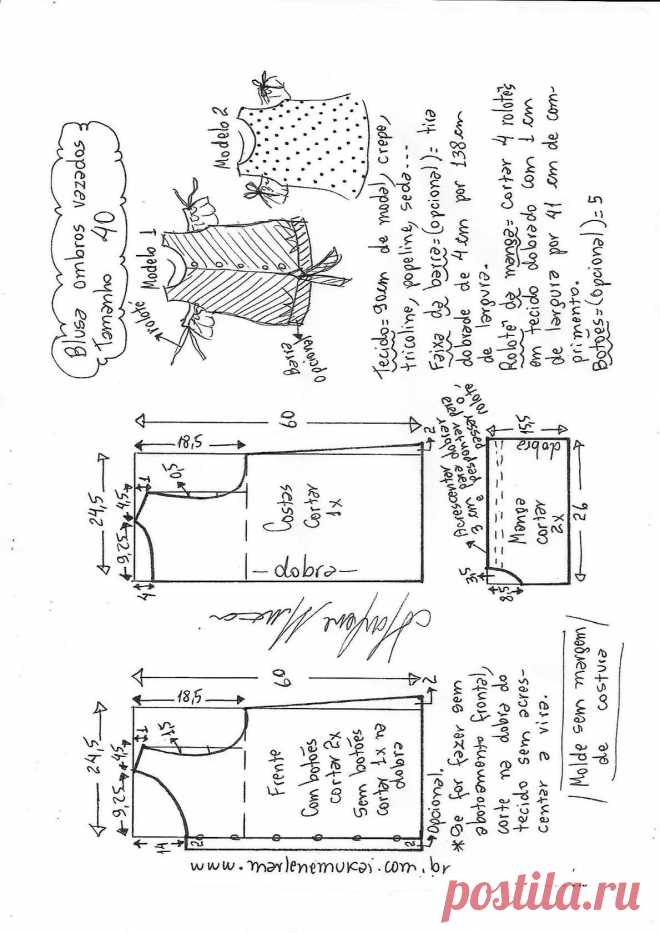 Blusa ombros vazados
Tamanho 40
Modelo 1
Modelo 2
rolotê
Barra
opcional
Tecido=90cm de modal, crepe,
tricoline, popeline, seda...
Faixa da barra=(opcional)= tira
dobrade de 4cm por 138cm
de largura.
Rolotê da manga= cortar 4 rolotês
em tecido dobrado com 1 cm
de largura por 41 cm de com-
primento.
Botões=(opcional)=5
60
18,5
24,5
4,5
1
9,25
4
0,5
2
Costas
Cortar
1x
-dobra-
Acrescentar
3 cm para dobrar
e pespontar para
passar o
rolotê,
15,5
dobra
26
Manga
cortar
2x
3,5
8,5
Marlene Mukai
60
18,5
24,5
4,5
1
9,25
14
1,5
2
Frente
Com botões
cortar 2x
Sem botões
cortar 1x na
dobra
2
2
Opcional.
*Se for fazer sem
abotoamento frontal,
corte na dobra do
tecido sem acres-
centar a vira.
Molde sem margem
de costura
www.marlenemukai.com.br
postila.ru